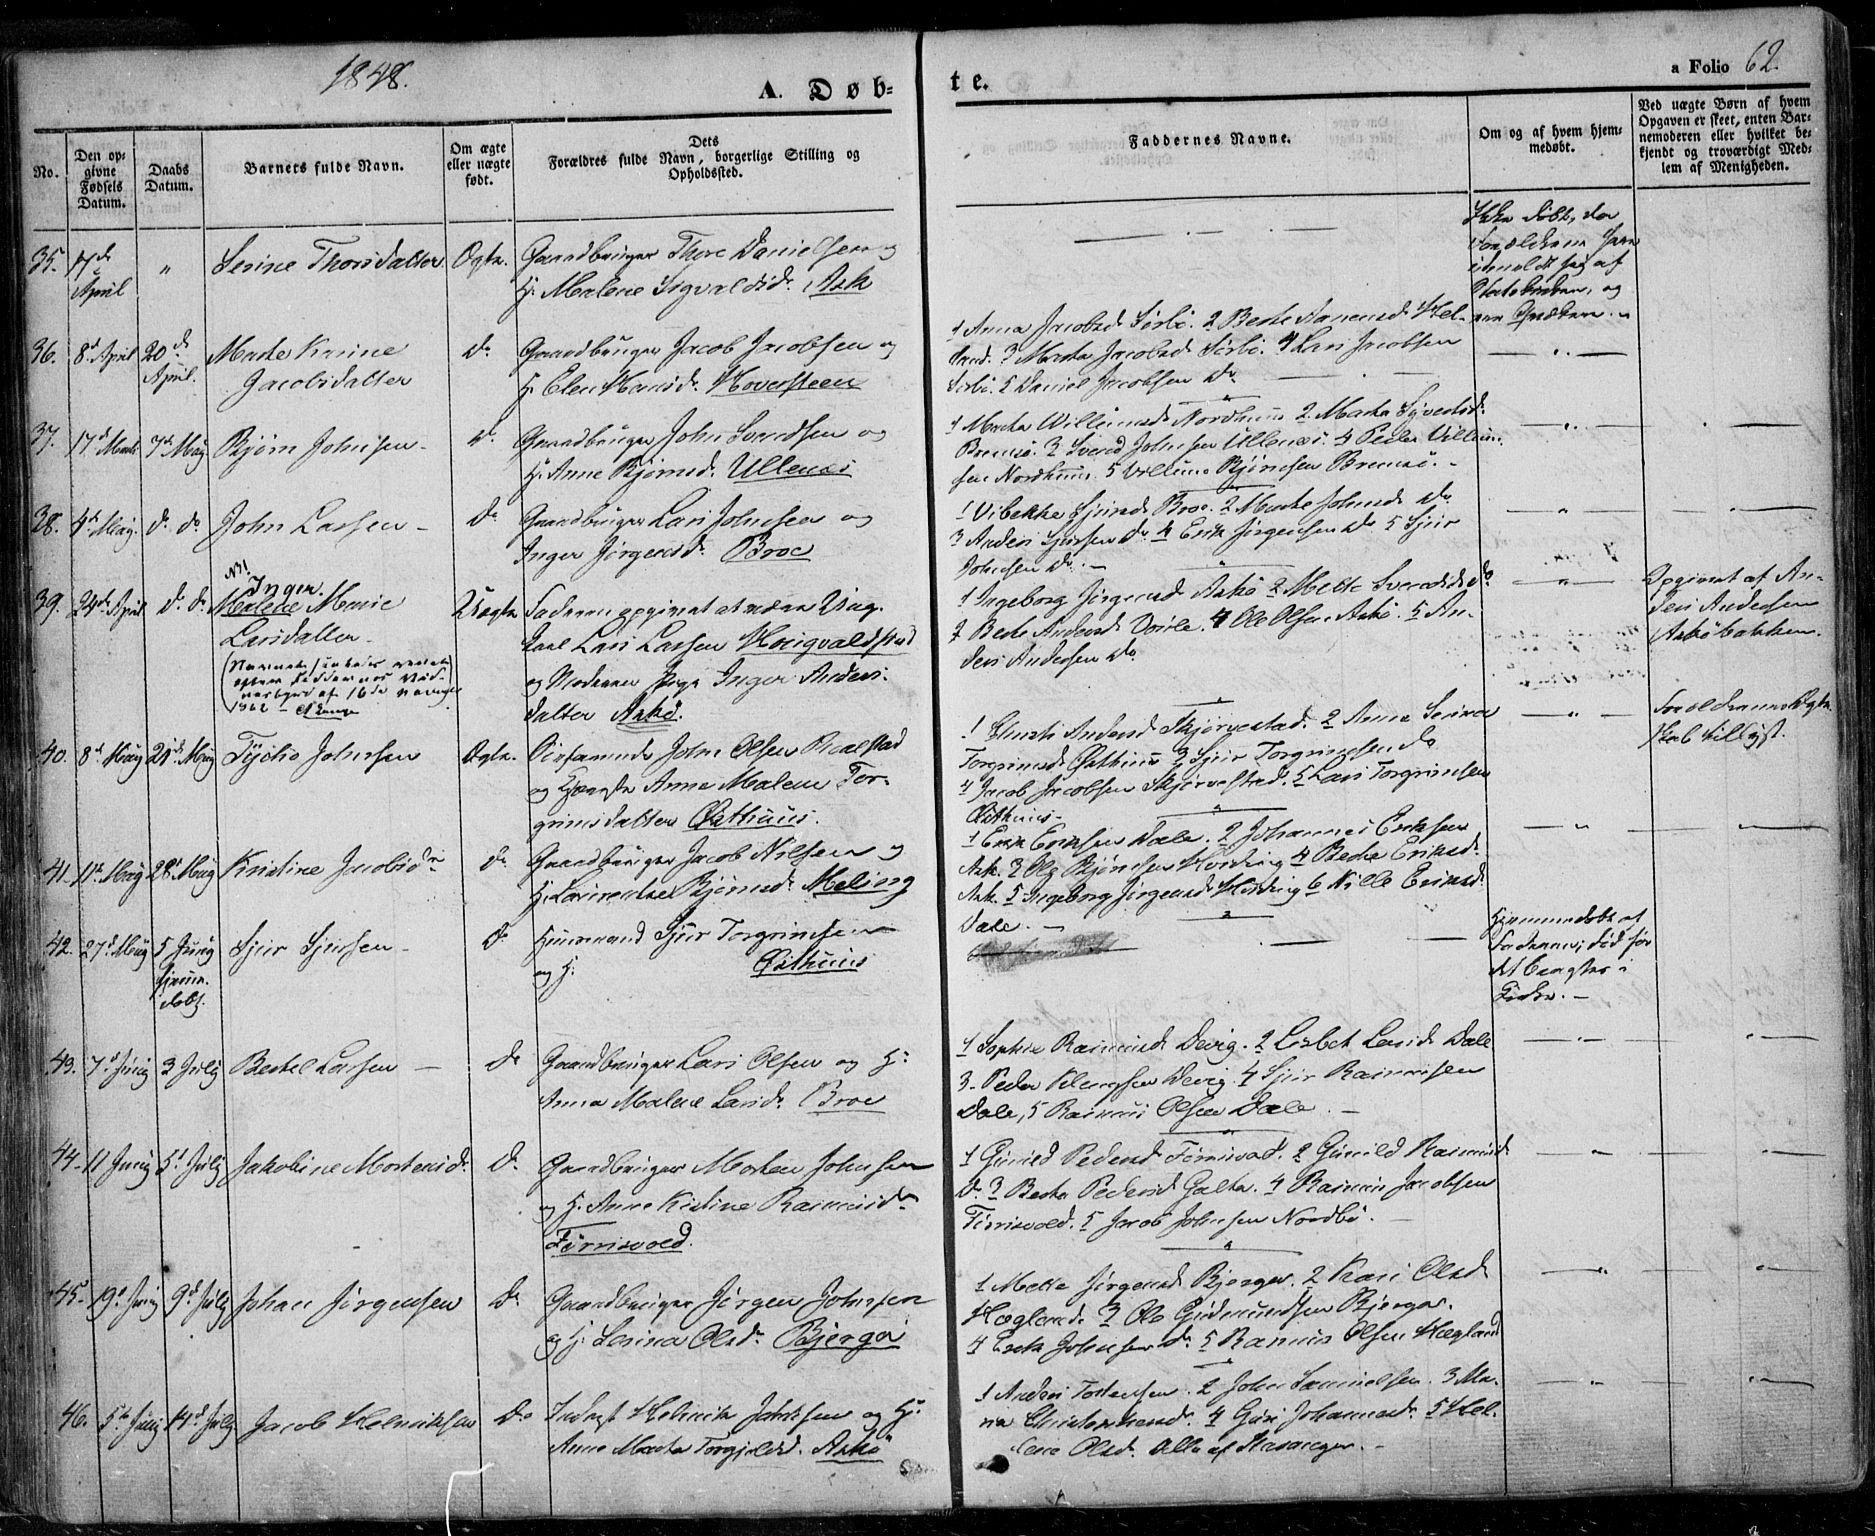 1848.
A. Døb-
te.
a Folio 62
No.
Den op-
givne
Fødsels
Datum.
Daabs
Datum.
Barnets fulde Navn.
Om ægte
eller uægte
født.
Dets
Forældres fulde Navn, borgerlige Stilling og
Opholdssted.
Faddernes Navne.
Om og af hvem hjem-
medøbt.
Ved uægte Børn af hvem
Opgaven er skeet, enten Bar-
nemoderen eller hvilket be-
kjendt og troværdigt Med-
lem af Menigheden.
35. 17de April " Serine Thorsdatter Ægte. Gaardbruger Thore Danielsen og
H. Malene Sigvaldsd. Ask
Ikke døbt, da
Forældrene have
udmeldt sig af
Statskirken, og
ere Qvækere.
36. 8d April 20d April. Marte Karine
Jacobsdatter
Do Gaardbruger Jacob Jacobsen og
H. Elen Hansd. Hoversteen
1 Anna Jacobsd Sørbø. 2 Berte Hel-
land. 3 Marta Jacobsd Sørbø. 4 Lars Jacobsen
Sørbø. 5 Daniel Jacobsen Do
37. 17d Marts 7d May Bjørn Johnsen
Do Gaardbruger John Svendsen og
H. Anne Bjørnsd. Ullenæs
1 Marta Willumsd Nordhuus 2. Marta Syvertsd.
Bremsø. 3 Svend Johnsen Ullenæs. 4 Peder Villum-
sen Nordhuus. 5 Villum Bjørnsen Bremsø.
38. 4d May. do do John Larsen
Do Gaardbruger Lars Johnsen og
Inger Jørgensd. Broe
1 Vibekke Sjursd Broe. 2 Marte Johnsd Do
3 Anders Sjursen Do 4 Erik Jørgensen Do 5 Sjur
Johnsen Do.
39. 24d April do do NB! Inger
Malene Marie
Larsdatter
16de
1862
Uægte Faderen opgivet at være Ung-
karl Lars Larsen Hougvaldstad
og Moderen Pige Inger Anders-
datter Askø.
1 Ingeborg Jørgensd Askø 2 Mette Svendsd do
3 Berte Andersd Voile. 4 Ole Olsen Askø. 5 An-
ders Andersen Do
Opgivet af An-
ders Andersen
Askøbakken.
40. 8d May 21d May Tycho Johnsen
Ægte. John Olsen Realstad
og Anne Malene Tor-
grimsdatter Østhuus.
1 Andersd Skjørvestad. 2 Anne Serina
Torgrimsd Østhuus 3 Sjur Torgrimsen do
4 Jacob Jacobsen Skjørvestad. 5 Lars Torgrimsen
Østhuus
Forældrenes Ægte-
skab tillyst.
41. 11d May 28d May Kristine Jacobsdr
do Gaardbruger Jacob Nilsen og
H. Bjørnsd. Meling
1 Erik Eriksen Dale. 2 Johannes Eriksen
Ask. 3 Ole Bjørnsen 4 Berte Eriksd.
Ask. 5 Ingeborg Jørgensd 6 Nille Eriksd.
Dale.
42. 27d May 5 Juny
hjemme-
døbt.
Sjur Sjursen
do Huusmand Sjur Torgrimsen
og H. Østhuus
Hjemmedøbt af
Faderen, død før
det bragtes i
Kirke.
43. 7d Juny 3 July Bertel Larsen
Do Gaardbruger Lars Olsen og H.
Anna Malene Larsd. Broe
1 Sophie Rasmusd Devig. 2 Lisbet Larsd Dale
3. Peder Klungsen Devig. 4 Sjur Rasmusen
Dale, 5 Rasmus Olsen Dale.
44. 11 Juny 5d July Jakobine Mortensd.
Do Gaardbruger Morten Johnsen
og H. Anne Kistine Rasmusdr
Førrisvold.
1 Pedersd Førrisvold. 2 Gunild Rasmusd
Do. 3 Berta Pedersd Galta. 4 Rasmus Jacobsen
Førrisvold. 5 Jacob Johnsen Nordbø.
45. 19d Juny 9d July Johan Jørgensen
Do Gaardbruger Jørgen Johnsen
og H. Serina Olsd. Bjergø
1 Mette Jørgensd Bjergø. 2 Kari Olsd
Hægland. 3 Ole Gudmundsen Bjergø.
4 Erik Johnsen Do 5 Rasmus Olsen Hægland
46. 5te Juny 14d July Jacob Helmiksen
Do Inderst Helmik Jacobsen og H.
Anne Marta Torgjelsd. Askø
1 Anders Tostensen. 2 John Samuelsen. 3 Ma-
ria Christensensd. 4 Guri Johannesd. 5 Hel-
lene Olsd. Alle af Stavanger.